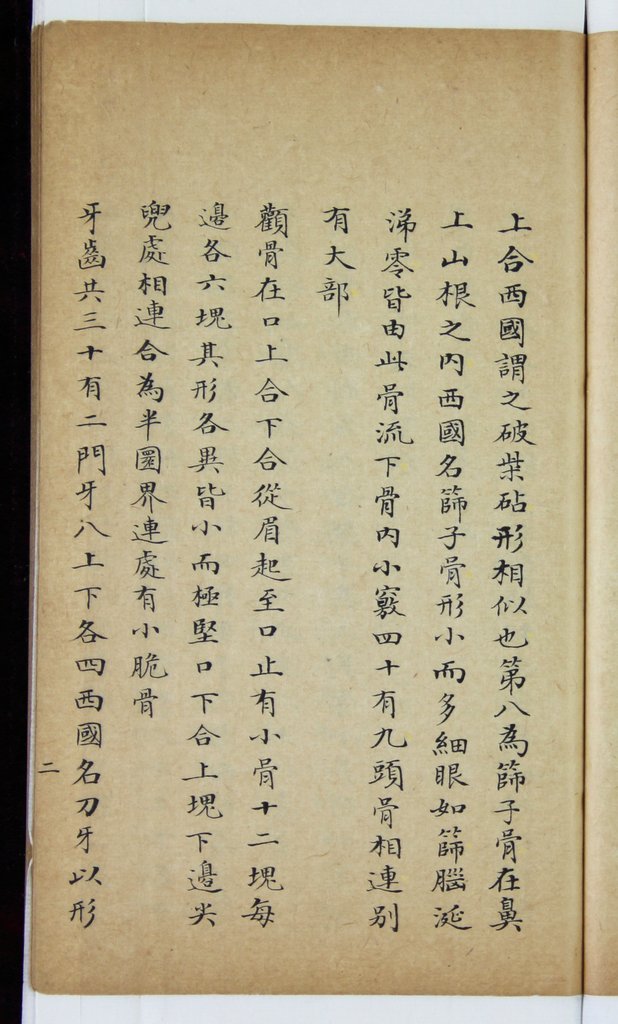 上合西國謂之破柴砧形相似也第八為篩子骨在鼻
上山根之内西國名篩子骨形小而多細眼如篩腦涎
涕零皆由此骨流下骨内小竅四十有九頭骨相連别
有大部
顴骨在口上合下合從眉起至口止有小骨十二塊每
邉各六塊其形各異皆小而極堅口下合上塊下邉尖
兜處相連合為半圈界連處有小脆骨
牙齒共三十有二門牙八上下各四西國名刀牙以形
二